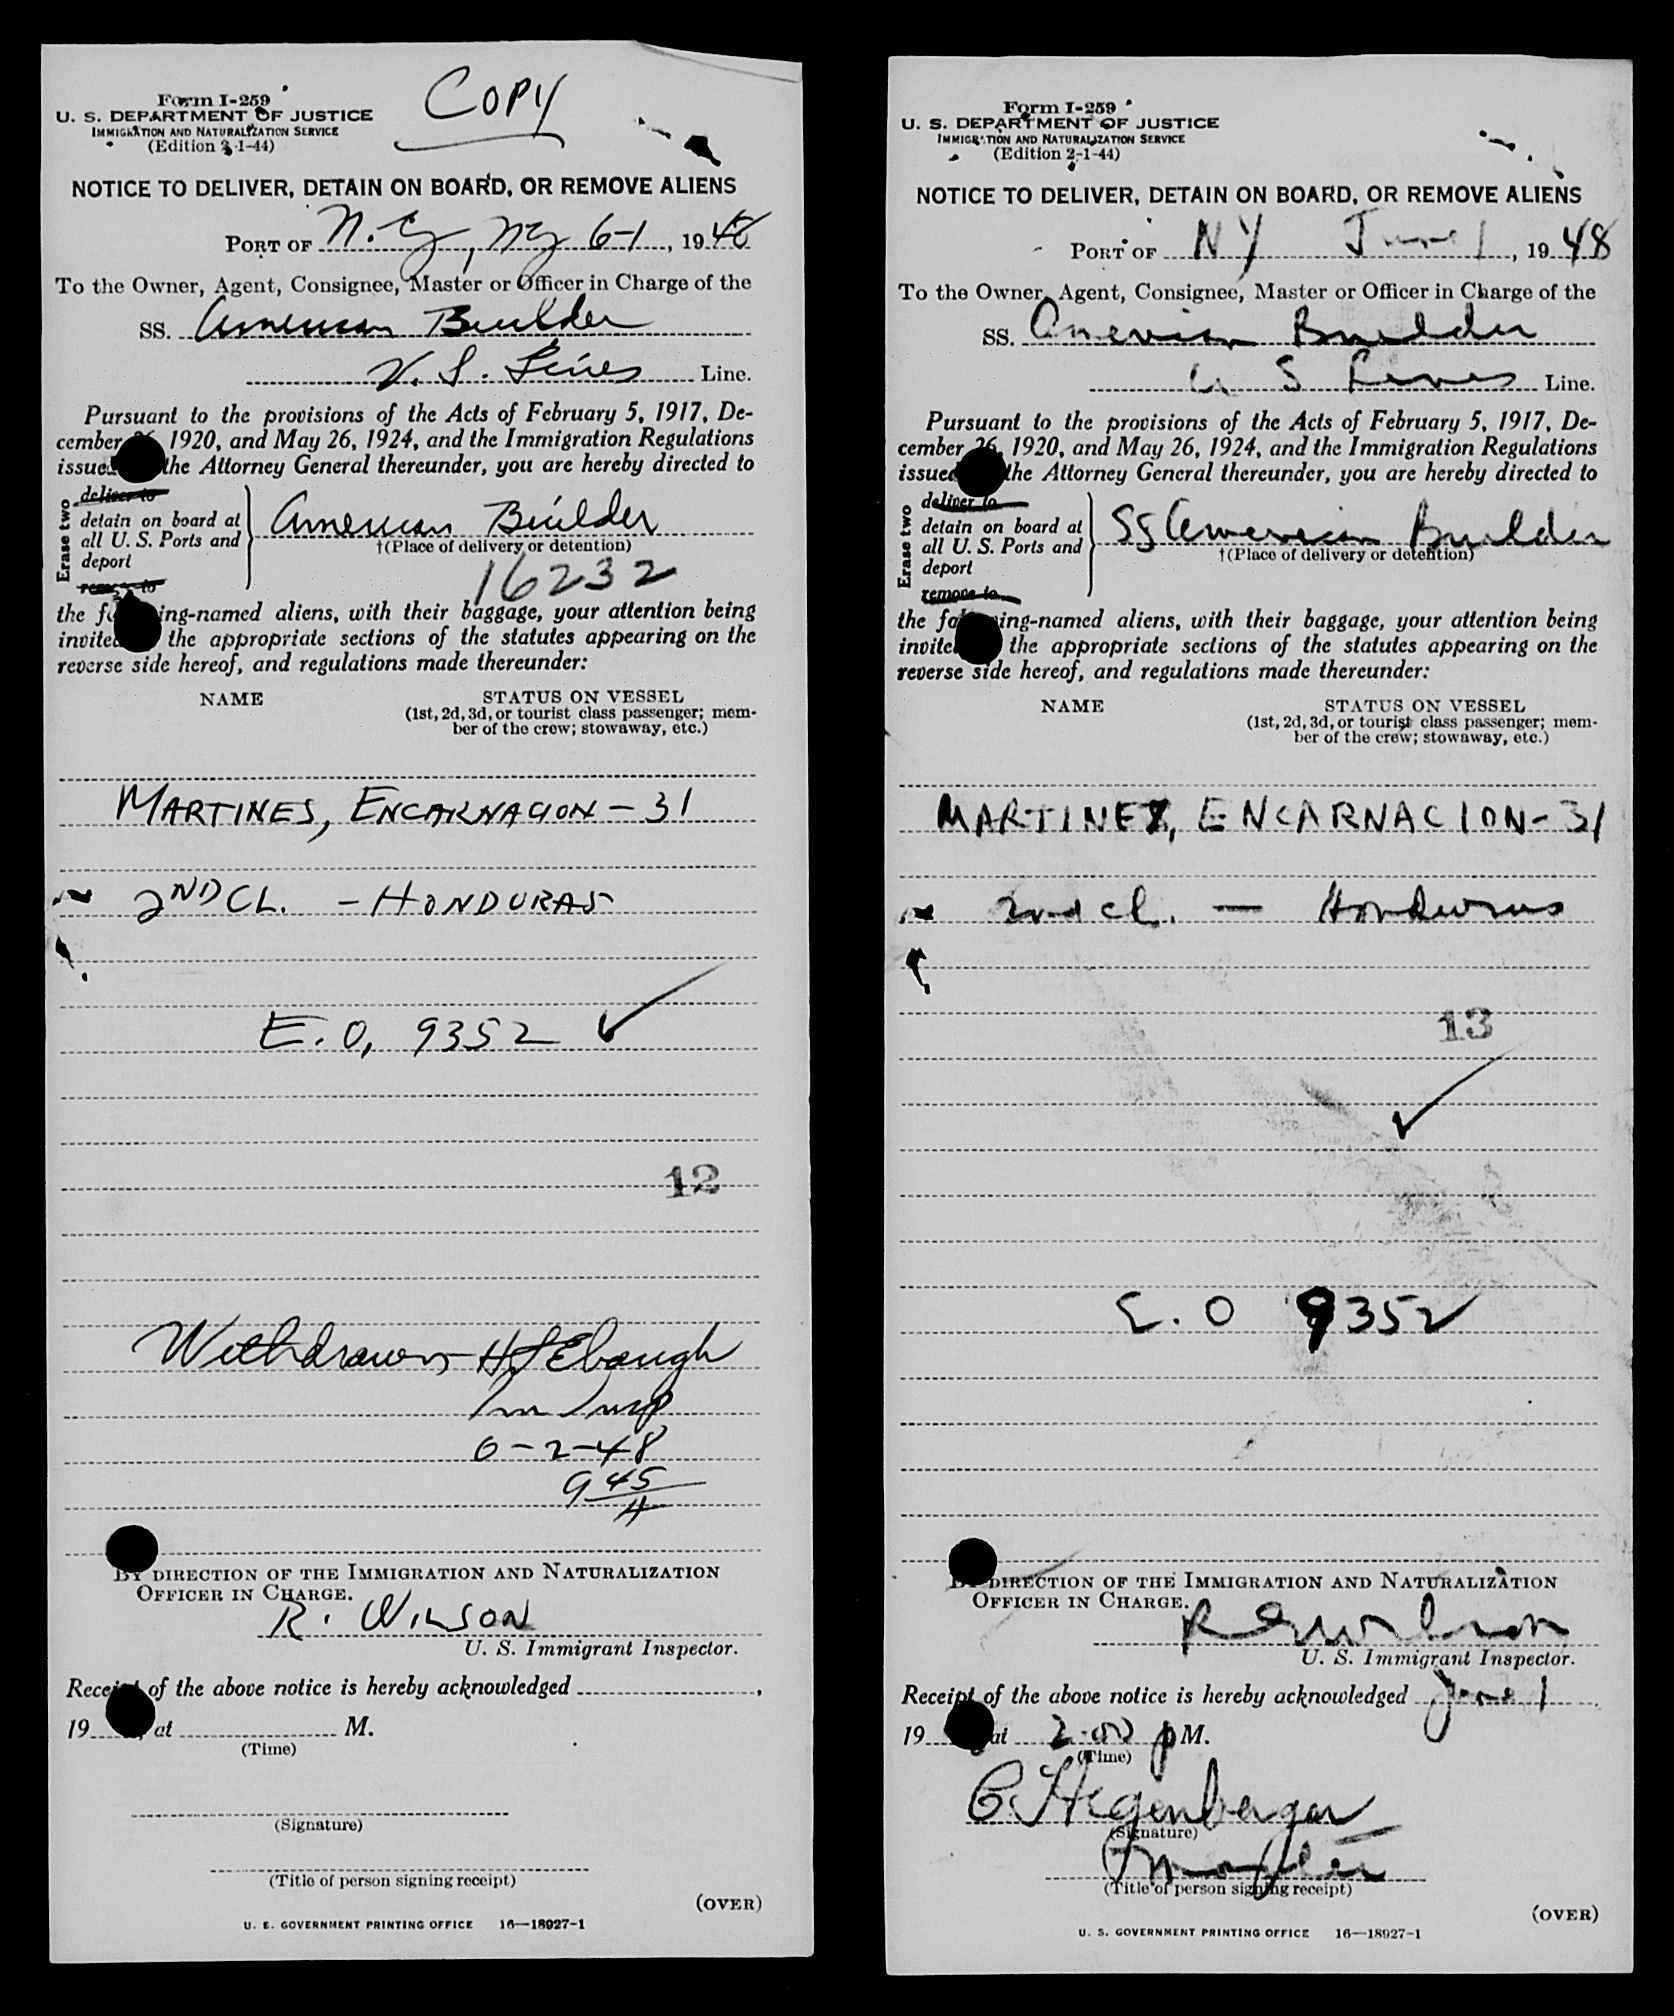 Form I-259
U. S. DEPARTMENT OF JUSTICE
IMMIGRATION AND NATURALIZATION SERVICE
(Edition 2-1-44)
COPY
NOTICE TO DELIVER, DETAIN ON BOARD, OR REMOVE ALIENS
PORT OF N.Y., NY 6-1, 1948
To the Owner, Agent, Consignee, Master or Officer in Charge of the
SS. American Builder
U.S. Lines Line.
Pursuant to the provisions of the Acts of February 5, 1917, De-
cember 26, 1920, and May 26, 1924, and the Immigration Regulations
issued the Attorney General thereunder, you are hereby directed to
Erase two
deliver to
detain on board at
all U. S. Ports and
deport
remove to
American Builder
†(Place of delivery or detention)
16232
the following-named aliens, with their baggage, your attention being
invited the appropriate sections of the statutes appearing on the
reverse side hereof, and regulations made thereunder:
NAME STATUS ON VESSEL
(1st, 2d, 3d, or tourist class passenger; mem-
ber of the crew; stowaway, etc.)
MARTINES, ENCARNACION - 31
2ND CL. - HONDURAS
E.O, 9352 ✓
12
Withdrawn H.J. Ebaugh
Im Insp
6-2-48
9 45
A
BY DIRECTION OF THE IMMIGRATION AND NATURALIZATION
OFFICER IN CHARGE.
R. WILSON
U. S. Immigrant Inspector.
Receipt of the above notice is hereby acknowledged ,
19 , at M.
(Time)
(Signature)
(Title of person signing receipt)
(OVER)
U. S. GOVERNMENT PRINTING OFFICE 16—18927-1
Form I-259
U. S. DEPARTMENT OF JUSTICE
IMMIGRATION AND NATURALIZATION SERVICE
(Edition 2-1-44)
NOTICE TO DELIVER, DETAIN ON BOARD, OR REMOVE ALIENS
PORT OF NY June 1, 1948
To the Owner, Agent, Consignee, Master or Officer in Charge of the
SS. American Builder
U S Lines Line.
Pursuant to the provisions of the Acts of February 5, 1917, De-
cember 26, 1920, and May 26, 1924, and the Immigration Regulations
issued the Attorney General thereunder, you are hereby directed to
Erase two
deliver to
detain on board at
all U. S. Ports and
deport
remove to
SS American Builder
†(Place of delivery or detention)
the following-named aliens, with their baggage, your attention being
invited the appropriate sections of the statutes appearing on the
reverse side hereof, and regulations made thereunder:
NAME STATUS ON VESSEL
(1st, 2d, 3d, or tourist class passenger; mem-
ber of the crew; stowaway, etc.)
MARTINEZ, ENCARNACION - 31
2nd cl. — Honduras
13
✓
E. O 9352
BY DIRECTION OF THE IMMIGRATION AND NATURALIZATION
OFFICER IN CHARGE.
U. S. Immigrant Inspector.
Receipt of the above notice is hereby acknowledged June 1
19 at 2:00 p M.
(Time)
C. Hegenberger
(Signature)
(Title of person signing receipt)
(OVER)
U. S. GOVERNMENT PRINTING OFFICE 16—18927-1